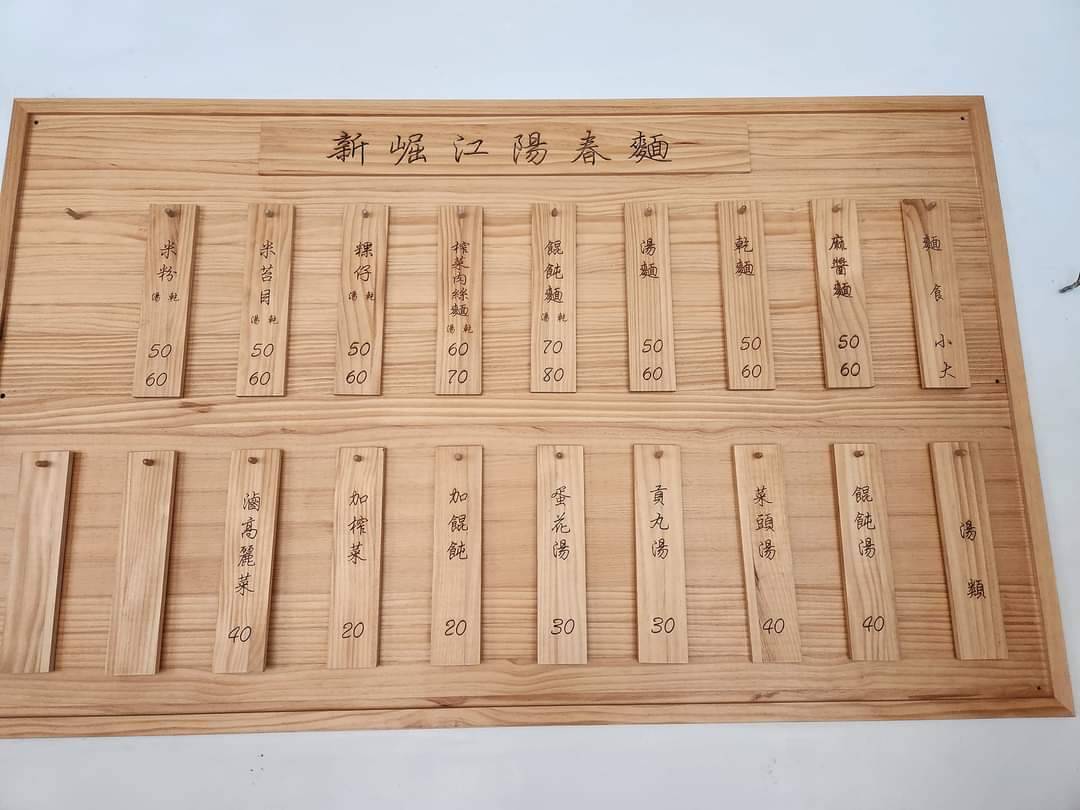 新崛江陽春麵
麵食 小 大
麻醬麵 50 60
乾麵 50 60
湯麵 50 60
餛飩麵 湯 乾 70 80
榨菜肉絲麵 湯 乾 60 70
粿仔 湯 乾 50 60
米苔目 湯 乾 50 60
米粉 湯 乾 50 60
湯類
餛飩湯 40
菜頭湯 40
貢丸湯 30
蛋花湯 30
加餛飩 20
加榨菜 20
滷高麗菜 40